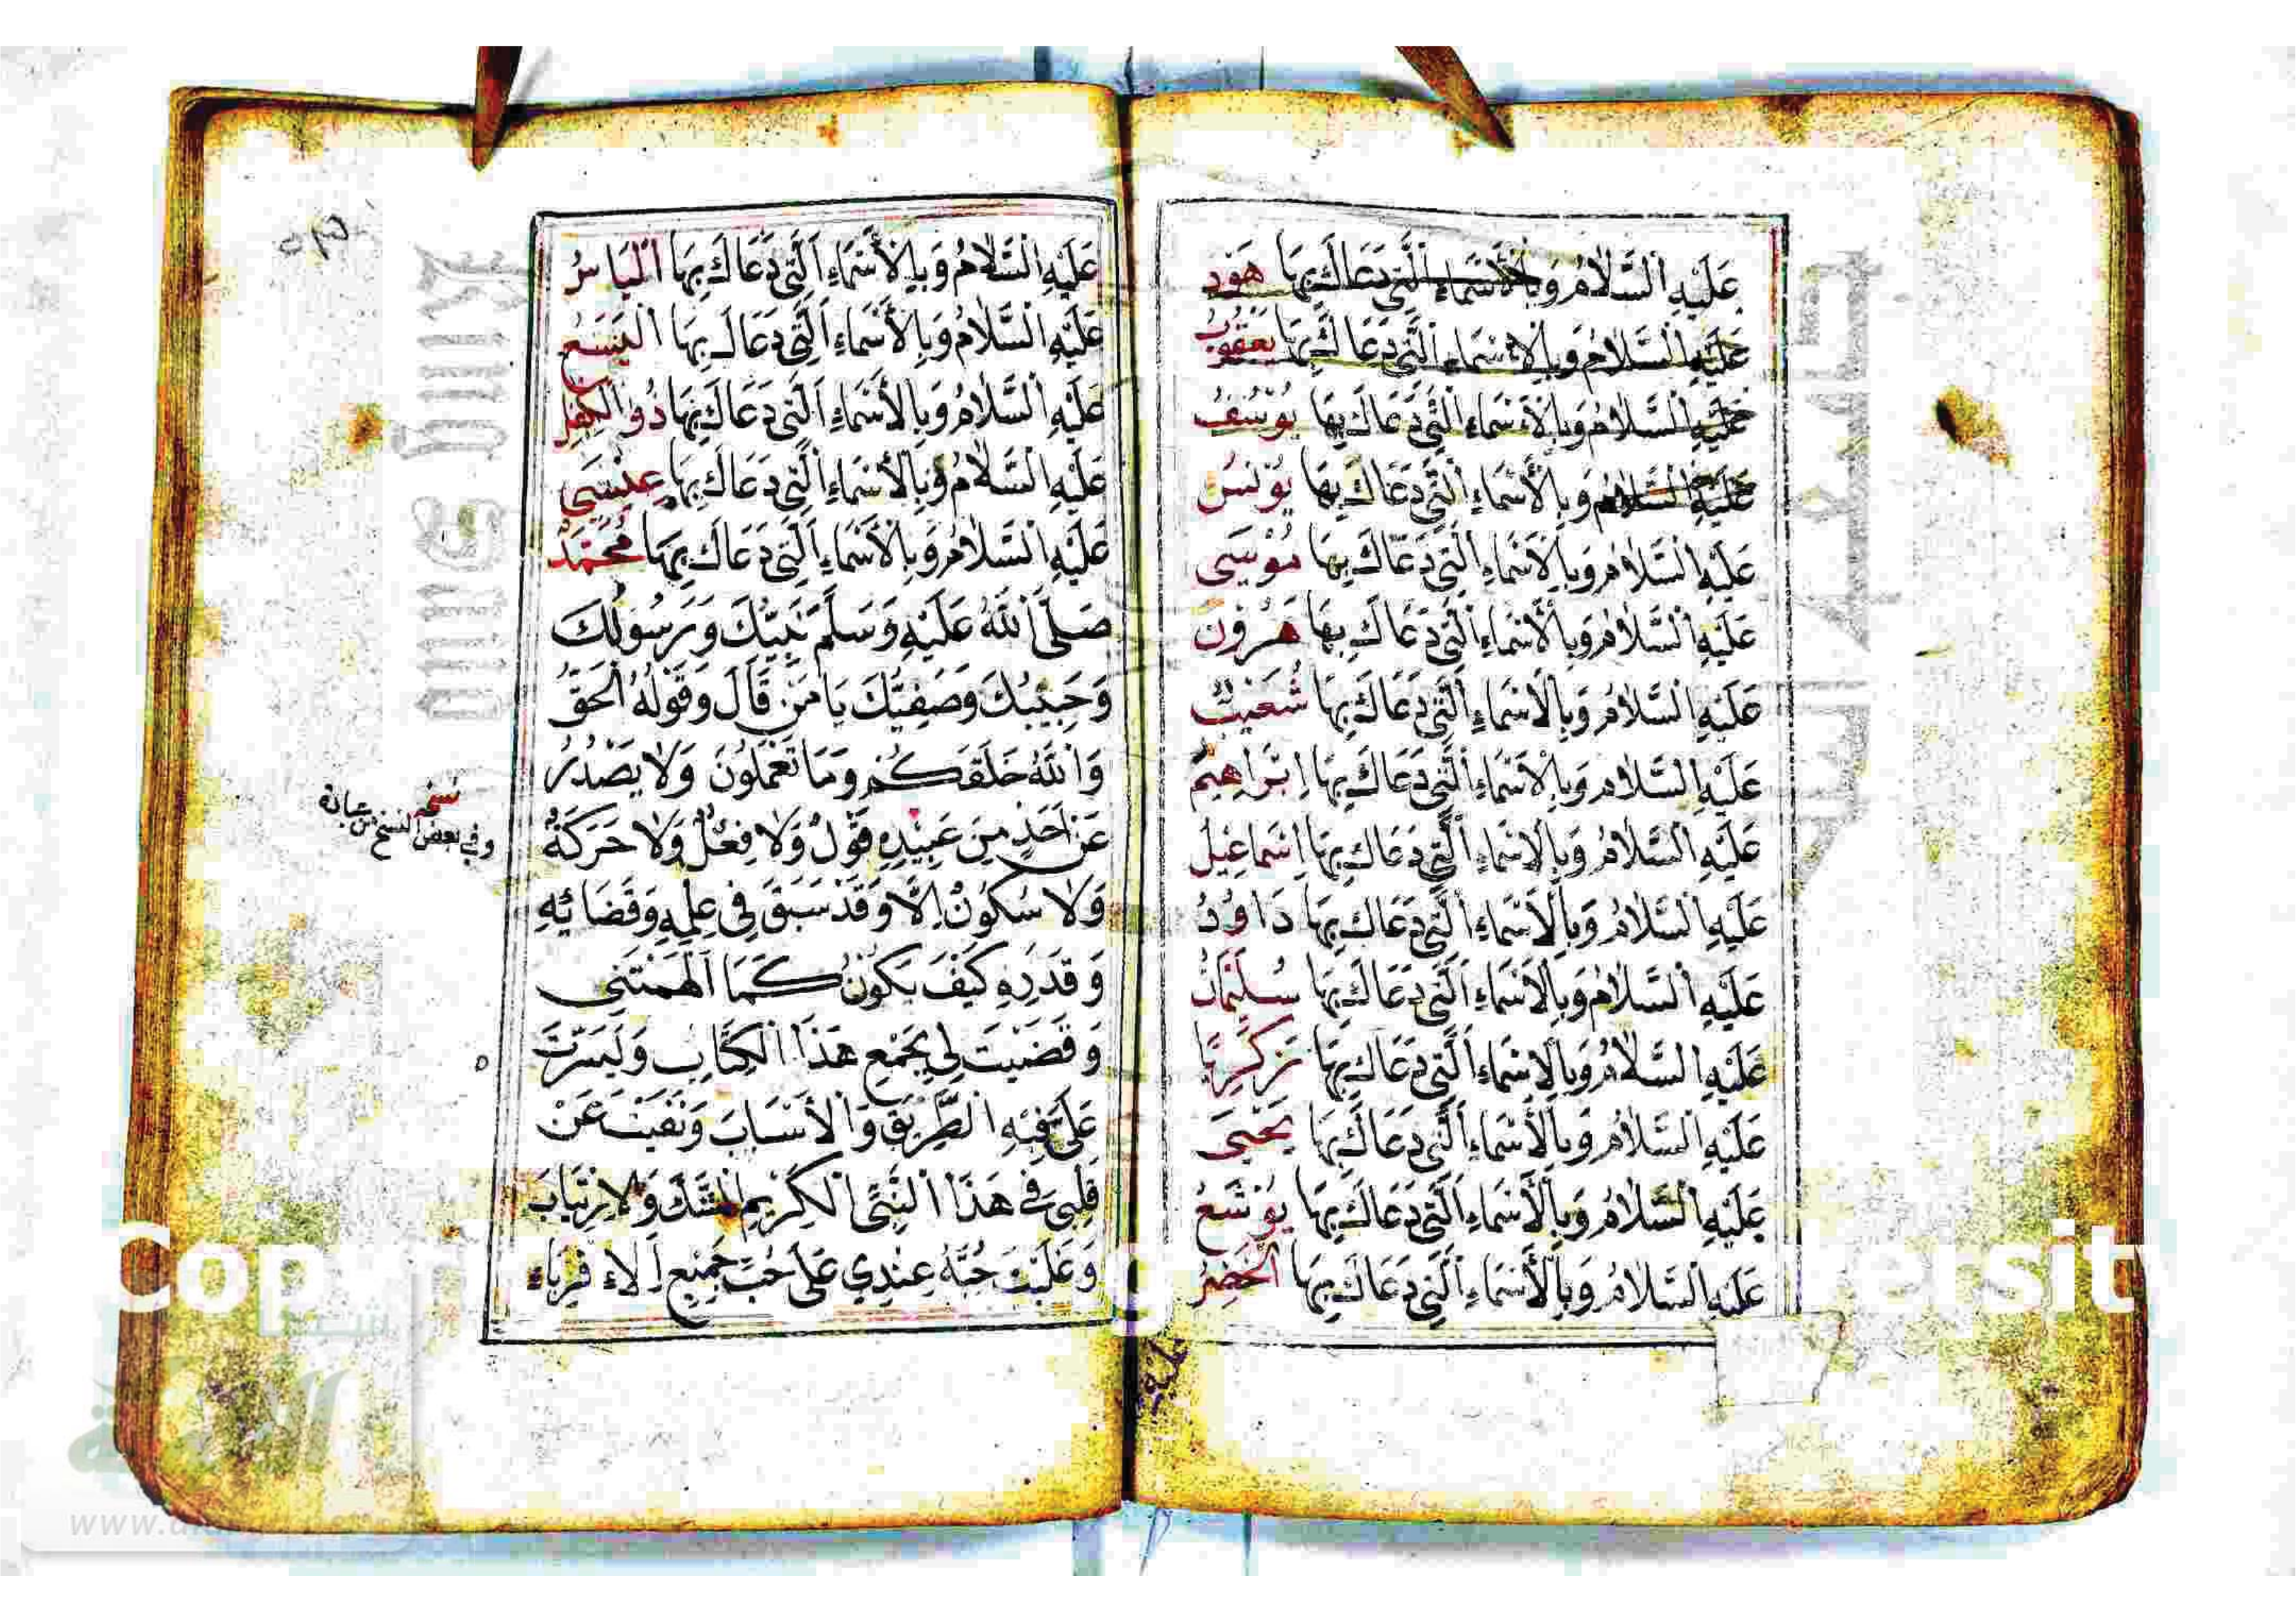 عَلَيْهِ السَّلَامُ وَبِالْأَسْمَاءِ الَّتِي دَعَاكَ بِهَا هُودٌ
عَلَيْهِ السَّلَامُ وَبِالْأَسْمَاءِ الَّتِي دَعَاكَ بِهَا يَعْقُوبُ
عَلَيْهِ السَّلَامُ وَبِالْأَسْمَاءِ الَّتِي دَعَاكَ بِهَا يُوسُفُ
عَلَيْهِ السَّلَامُ وَبِالْأَسْمَاءِ الَّتِي دَعَاكَ بِهَا يُونُسُ
عَلَيْهِ السَّلَامُ وَبِالْأَسْمَاءِ الَّتِي دَعَاكَ بِهَا مُوسَى
عَلَيْهِ السَّلَامُ وَبِالْأَسْمَاءِ الَّتِي دَعَاكَ بِهَا هَرُونُ
عَلَيْهِ السَّلَامُ وَبِالْأَسْمَاءِ الَّتِي دَعَاكَ بِهَا شُعَيْبٌ
عَلَيْهِ السَّلَامُ وَبِالْأَسْمَاءِ الَّتِي دَعَاكَ بِهَا اِبْرَاهِيمُ
عَلَيْهِ السَّلَامُ وَبِالْأَسْمَاءِ الَّتِي دَعَاكَ بِهَا اِسْمَاعِيلُ
عَلَيْهِ السَّلَامُ وَبِالْأَسْمَاءِ الَّتِي دَعَاكَ بِهَا دَاوُدُ
عَلَيْهِ السَّلَامُ وَبِالْأَسْمَاءِ الَّتِي دَعَاكَ بِهَا سُلَيْمَانُ
عَلَيْهِ السَّلَامُ وَبِالْأَسْمَاءِ الَّتِي دَعَاكَ بِهَا زَكَرِيَّا
عَلَيْهِ السَّلَامُ وَبِالْأَسْمَاءِ الَّتِي دَعَاكَ بِهَا يَحْيَى
عَلَيْهِ السَّلَامُ وَبِالْأَسْمَاءِ الَّتِي دَعَاكَ بِهَا يُوْشَعُ
عَلَيْهِ السَّلَامُ وَبِالْأَسْمَاءِ الَّتِي دَعَاكَ بِهَا الْخَضِرُ
عليه
عَلَيْهِ السَّلَامُ وَبِالْأَسْمَاءِ الَّتِي دَعَاكَ بِهَا اِلْيَاسُ
عَلَيْهِ السَّلَامُ وَبِالْأَسْمَاءِ الَّتِي دَعَاكَ بِهَا الْيَسَعُ
عَلَيْهِ السَّلَامُ وَبِالْأَسْمَاءِ الَّتِي دَعَاكَ بِهَا ذُو الْكِفْلِ
عَلَيْهِ السَّلَامُ وَبِالْأَسْمَاءِ الَّتِي دَعَاكَ بِهَا عِيسَى
عَلَيْهِ السَّلَامُ وَبِالْأَسْمَاءِ الَّتِي دَعَاكَ بِهَا مُحَمَّدٌ
صَلَّى اللَّهُ عَلَيْهِ وَسَلَّمَ نَبِيُّكَ وَرَسُولُكَ
وَحَبِيبُكَ وَصَفِيُّكَ يَا مَنْ قَالَ وَقَوْلُهُ الْحَقُّ
وَاللَّهُ خَلَقَكُمْ وَمَا تَعْمَلُونَ وَلَا يَصْدُرُ
عَنْ اَحَدٍ مِنْ عَبِيدِهِ قَوْلٌ وَلَا فِعْلٌ وَلَا حَرَكَةٌ
وَلَا سُكُونٌ اِلَّا وَقَدْ سَبَقَ فِي عِلْمِهِ وَقَضَائِهِ
وَقَدَرِهِ كَيْفَ يَكُونُ كَمَا اَلْهَمْتَنِي
وَقَضَيْتَ لِي بِجَمْعِ هَذَا الْكِتَابِ وَيَسَّرْتَ
عَلَيَّ فِيهِ الطَّرِيقَ وَالْأَسْبَابَ وَنَفَيْتَ عَنْ
قَلْبِي فِي هَذَا النَّبِيِّ الْكَرِيمِ الشَّكَّ وَالْاِرْتِيَابَ
وَغَلَّبْتَ حُبَّهُ عِنْدِي عَلَى حُبِّ جَمِيعِ الْاَقْرِبَاءِ
وفي بعض النسخ من عباده